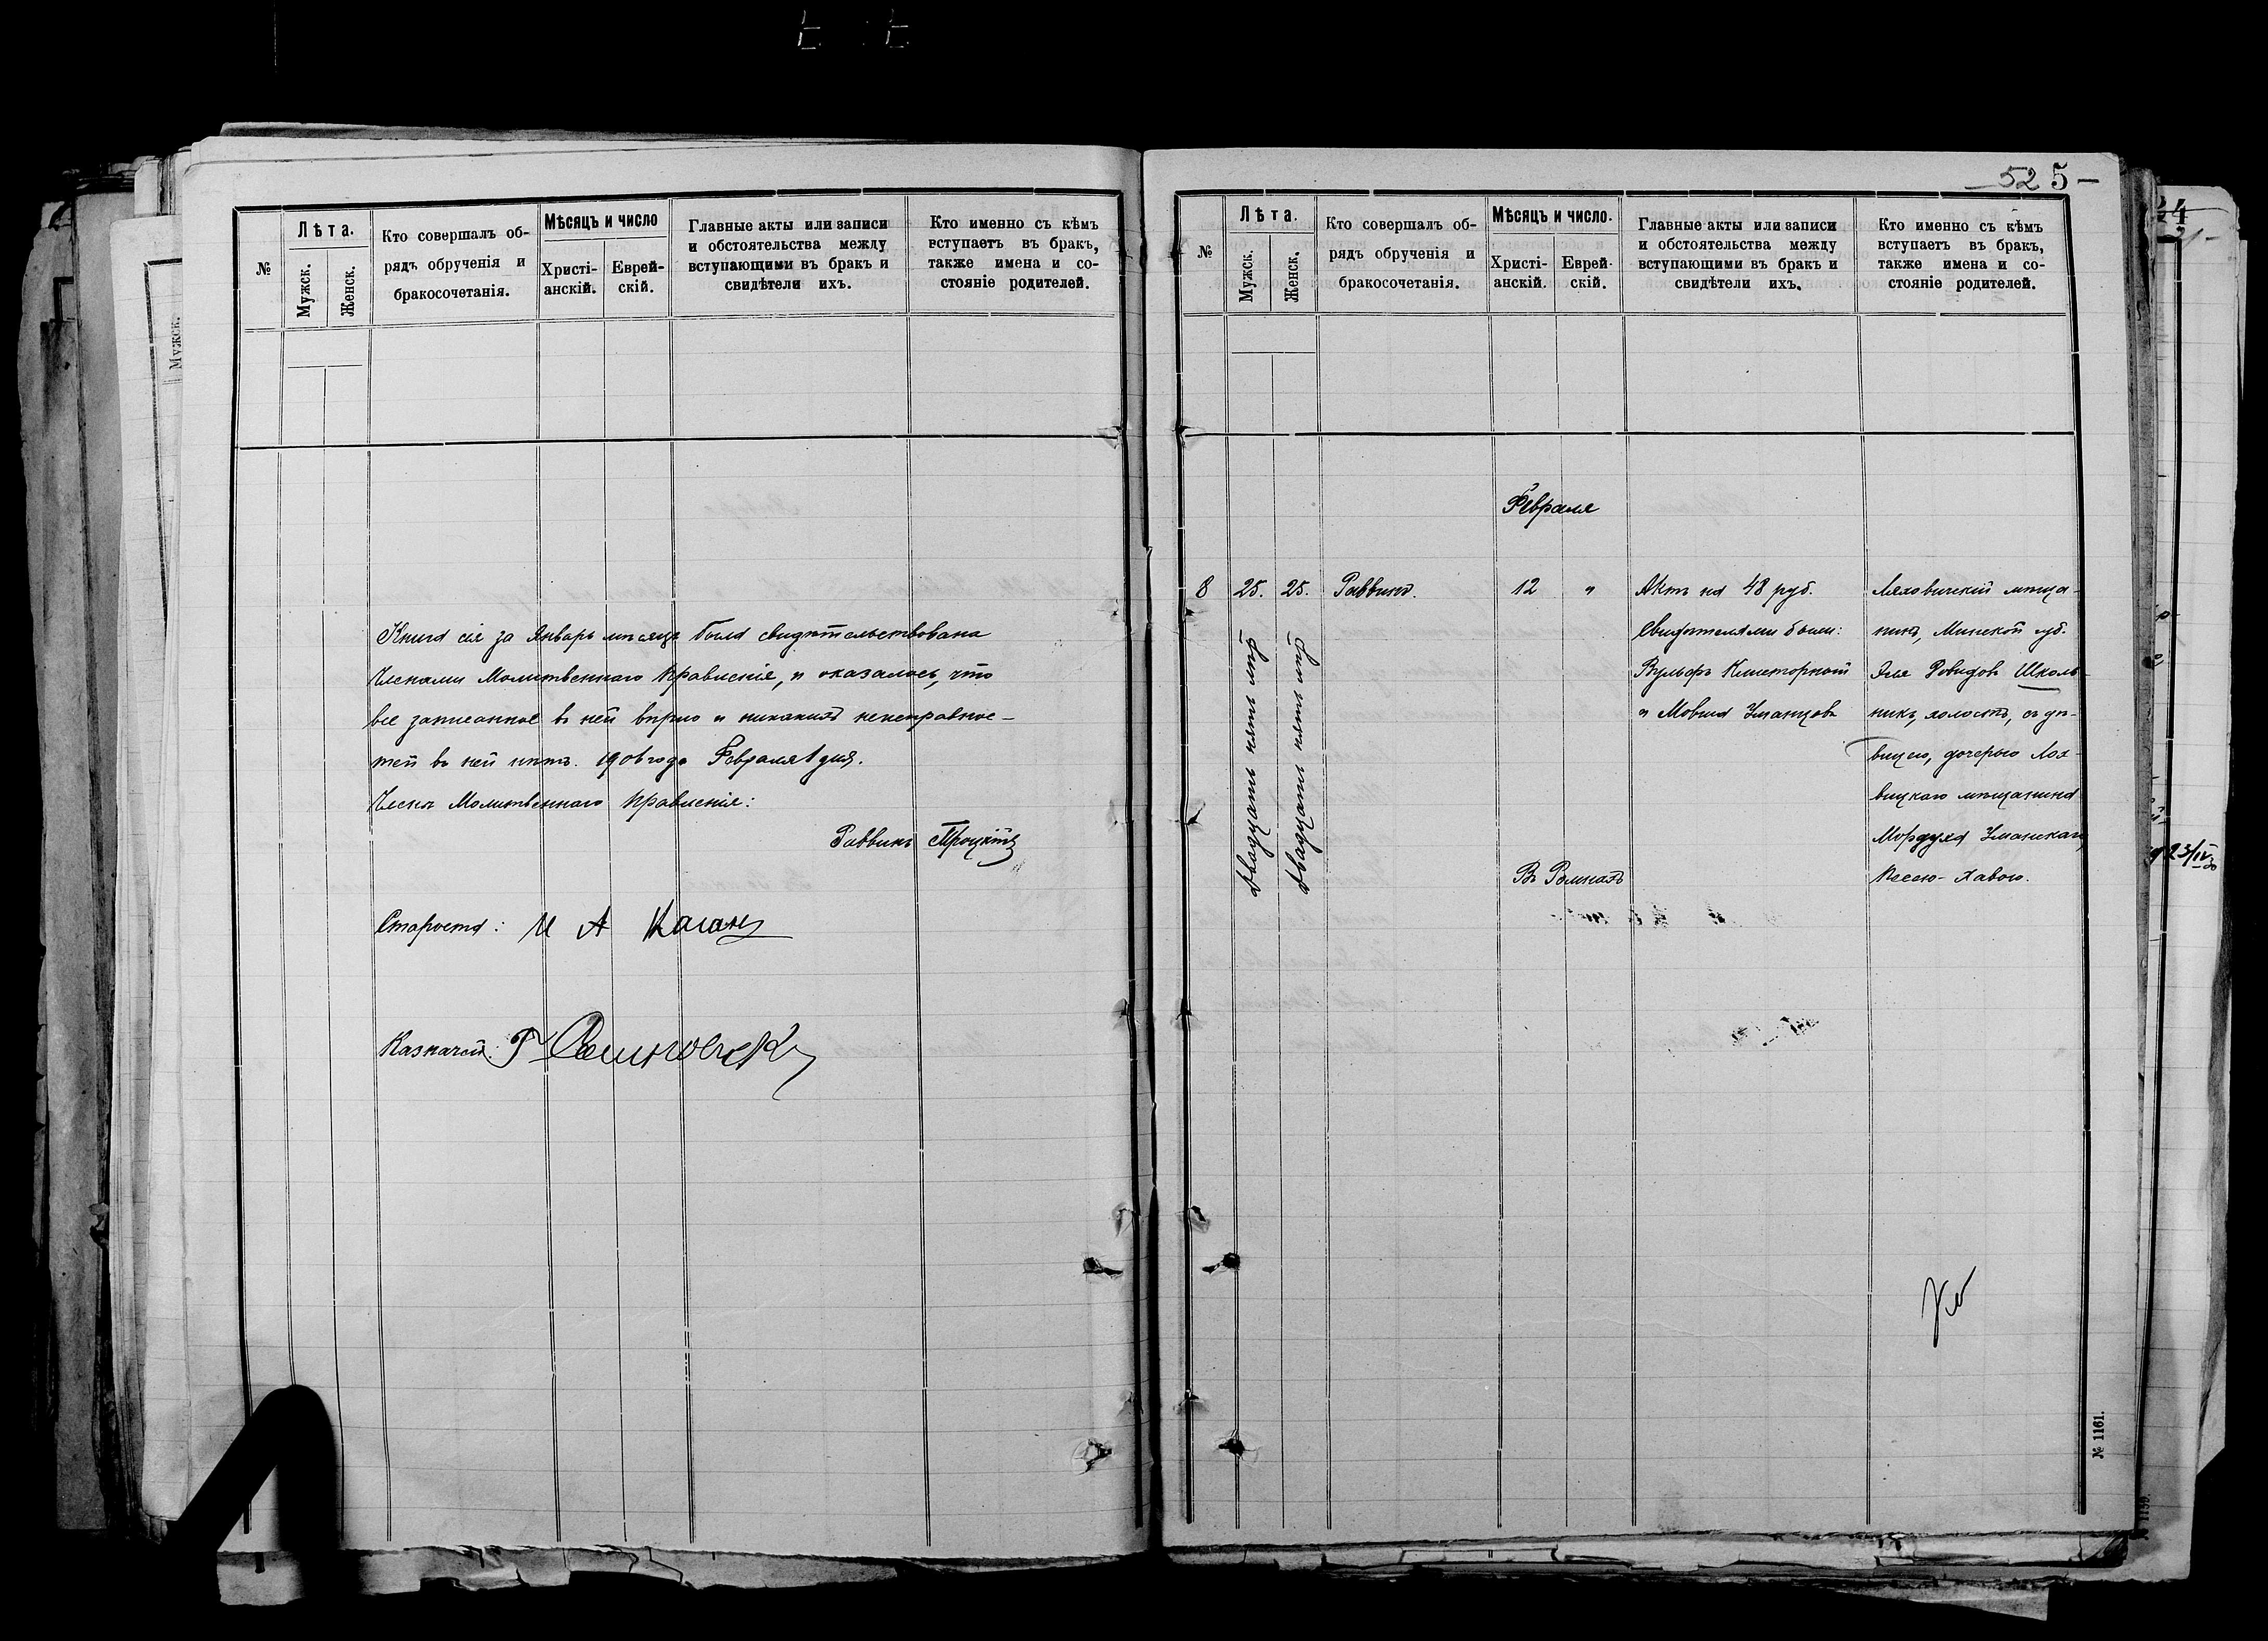 №
Лѣта.
Мужск.
Женск.
Кто совершалъ об-
рядъ обрученія и
бракосочетанія.
Мѣсяцъ и число
Христі-
анскій.
Еврей-
скій.
Главные акты или записи
и обстоятельства между
вступающими въ бракъ и
свидѣтели ихъ.
Кто именно съ кѣмъ
вступаетъ въ бракъ,
также имена и со-
стояніе родителей.
Книга сія за Январь мѣсяцъ была свидѣтельствована
Членами Молитвеннаго Правленія, и оказалось, что
все записанное въ ней вѣрно и никакихъ неисправнос-
тей въ ней нѣтъ. 1901 года Февраля 1 дня.
Члены Молитвеннаго Правленія:
Раввинъ
Староста: И А Каганъ
Казначей:
52 5-
№
Лѣта.
Мужск.
Женск.
Кто совершалъ об-
рядъ обрученія и
бракосочетанія.
Мѣсяцъ и число.
Христі-
анскій.
Еврей-
скій.
Главные акты или записи
и обстоятельства между
вступающими въ бракъ и
свидѣтели ихъ.
Кто именно съ кѣмъ
вступаетъ въ бракъ,
также имена и со-
стояніе родителей.
Февраля
8
25.
Двадцать пять лѣтъ
25.
Двадцать пять лѣтъ
Раввинъ.
12
"
Въ Ромнахъ
Актъ на 48 руб.
Свидѣтелями были:
Вульфъ Клигторной
и Мовша Уманцовъ
Ляховичскій мѣща-
нинъ, Минской губ.
Эля Довидовъ Школь-
никъ, холостъ, съ дѣ-
вицею, дочерью Лох-
вицкаго мѣщанина
Мордуха Уманскаго,
Песею-Хавою.
№ 1161.
Мужск.
№ 1159.